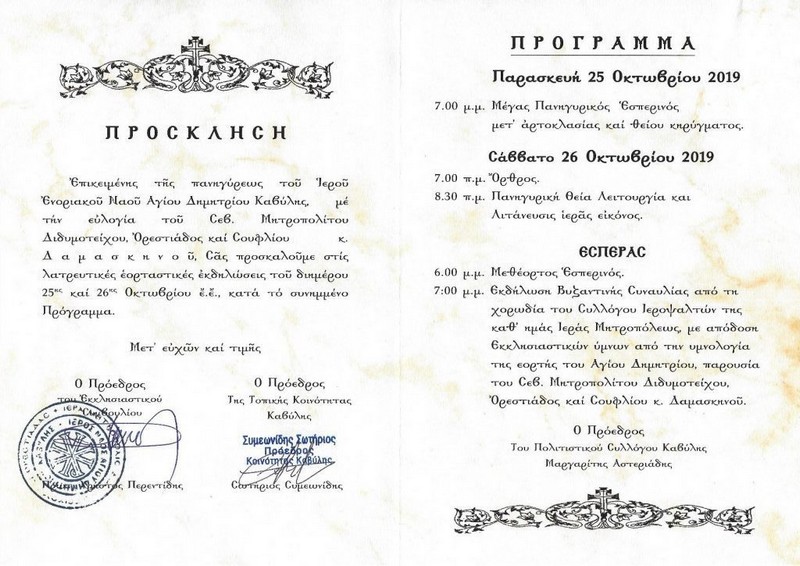 ΠΡΟΣΚΛΗΣΗ
Ἐπικειμένης τῆς πανηγύρεως τοῦ Ἱεροῦ
Ἐνοριακοῦ Ναοῦ Αγίου Δημητρίου Καβύλης, μέ
τήν εὐλογία τοῦ Σεβ. Μητροπολίτου
Διδυμοτείχου, Ὀρεστιάδος καί Σουφλίου κ.
Δαμασκηνοῦ, Σᾶς προσκαλοῦμε στίς
λατρευτικές ἑορταστικές ἐκδηλώσεις τοῦ διημέρου
25ης καί 26ης Οκτωβρίου ἐ.ἔ., κατά τό συνημμένο
Πρόγραμμα.
Μετ' εὐχῶν καί τιμῆς
Ο Πρόεδρος
του Ἐκκλησιαστικού
Συμβουλίου
Ο Πρόεδρος
Της Τοπικής Κοινότητας
Καβύλης
Συμεωνίδης Σωτήριος
Πρόεδρος
Κοινότητας Καβύλης
Περεντίδης
Σωτήριος Συμεωνίδης
ΠΡΟΓΡΑΜΜΑ
Παρασκευή 25 Οκτωβρίου 2019
7.00 μ.μ. Μέγας Πανηγυρικός Ἑσπερινός
μετ' ἀρτοκλασίας καί θείου κηρύγματος.
Σάββατο 26 Οκτωβρίου 2019
7.00 π.μ. Ὄρθρος.
8.30 π.μ. Πανηγυρική Θεία Λειτουργία και
Λιτάνευσις ἱερᾶς εἰκόνος.
ΕΣΠΕΡΑΣ
6.00 μ.μ. Μεθέορτος Ἑσπερινός.
7:00 μ.μ. Εκδήλωση Βυζαντινής Συναυλίας από τη
χορωδία του Συλλόγου Ιεροψαλτών της
καθ' ημάς Ιεράς Μητροπόλεως, με απόδοση
Εκκλησιαστικών ύμνων από την υμνολογία
της εορτής του Αγίου Δημητρίου, παρουσία
του Σεβ. Μητροπολίτου Διδυμοτείχου,
Ὀρεστιάδος καί Σουφλίου κ. Δαμασκηνοῦ.
Ο Πρόεδρος
Του Πολιτιστικού Συλλόγου Καβύλης
Μαργαρίτης Αστεριάδης